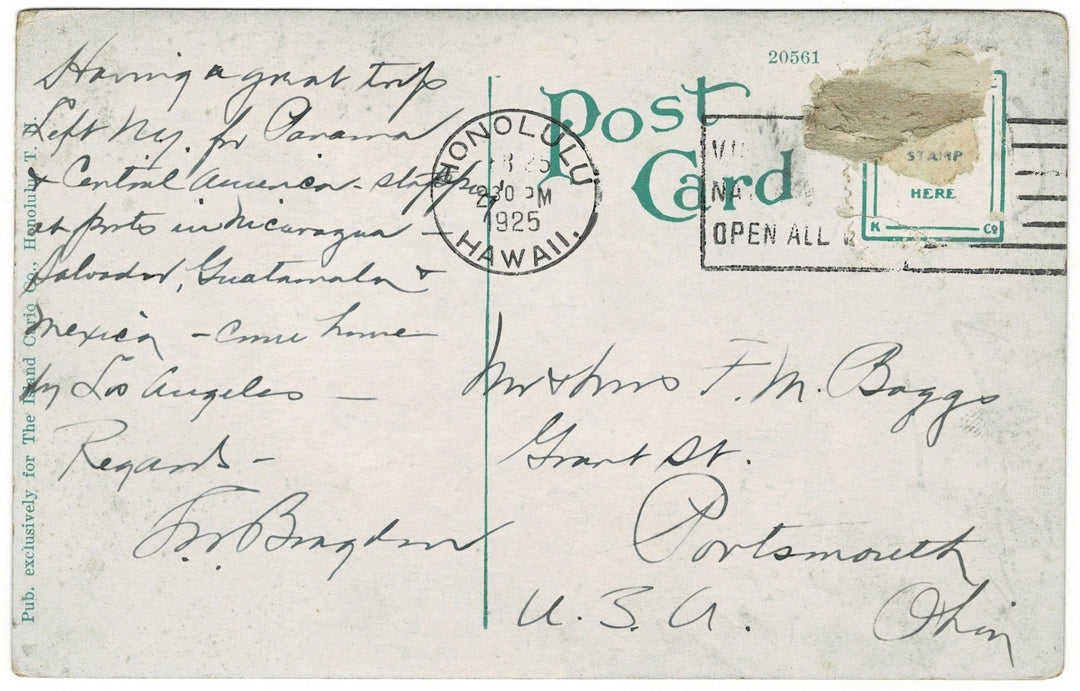 Having a great trip
Left N.y. for Panama
& Central America - stopping
at ports in Nicaragua -
Salvador, Guatamala &
Mexico - come home
by Los Angeles -
Regards -
Bragdon
Pub. exclusively for The Island Curio Co., Honolulu, T. H.
20561
Post
Card
HONOLULU
25
230 PM
1925
HAWAII.
OPEN ALL
STAMP
HERE
K Co
Mr & Mrs F. M. Baggs
Grant St.
Portsmouth
Ohio
U. S. A.